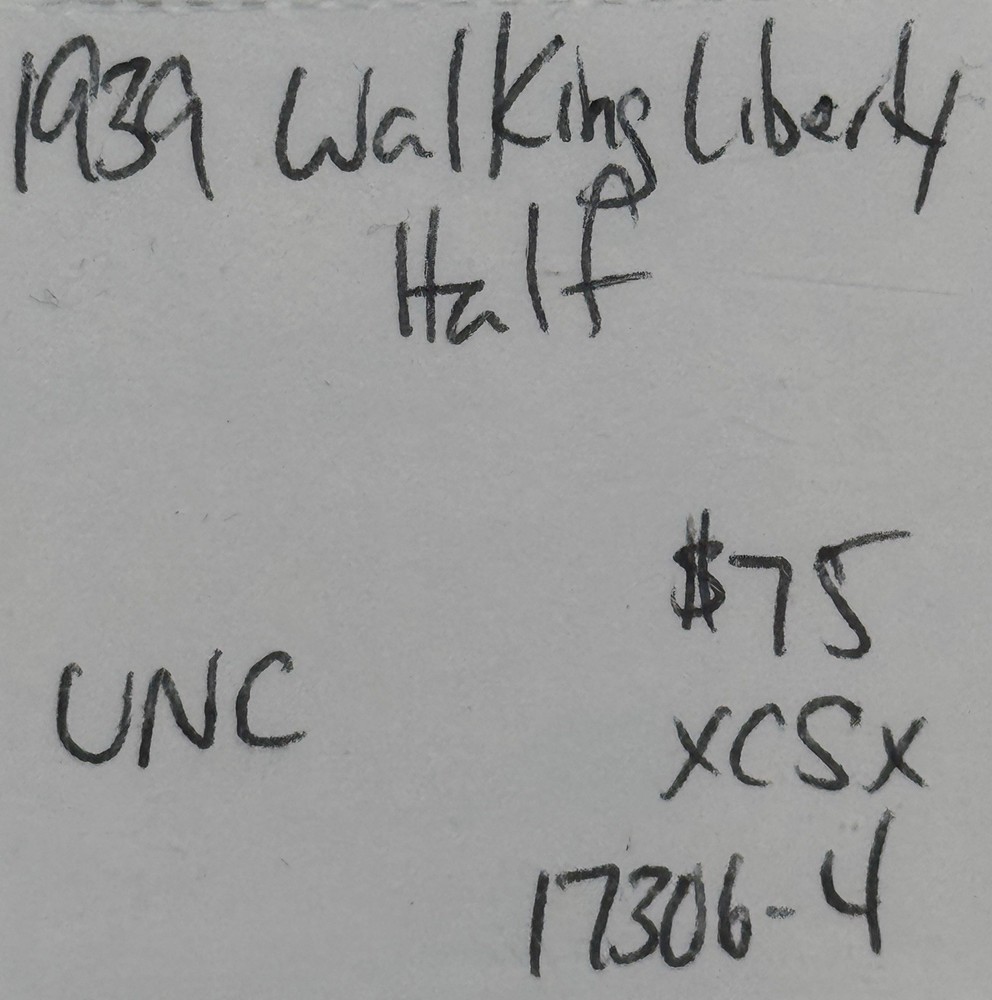 1939 Walking Liberty
Half
$75
UNC
XCSX
17306-4